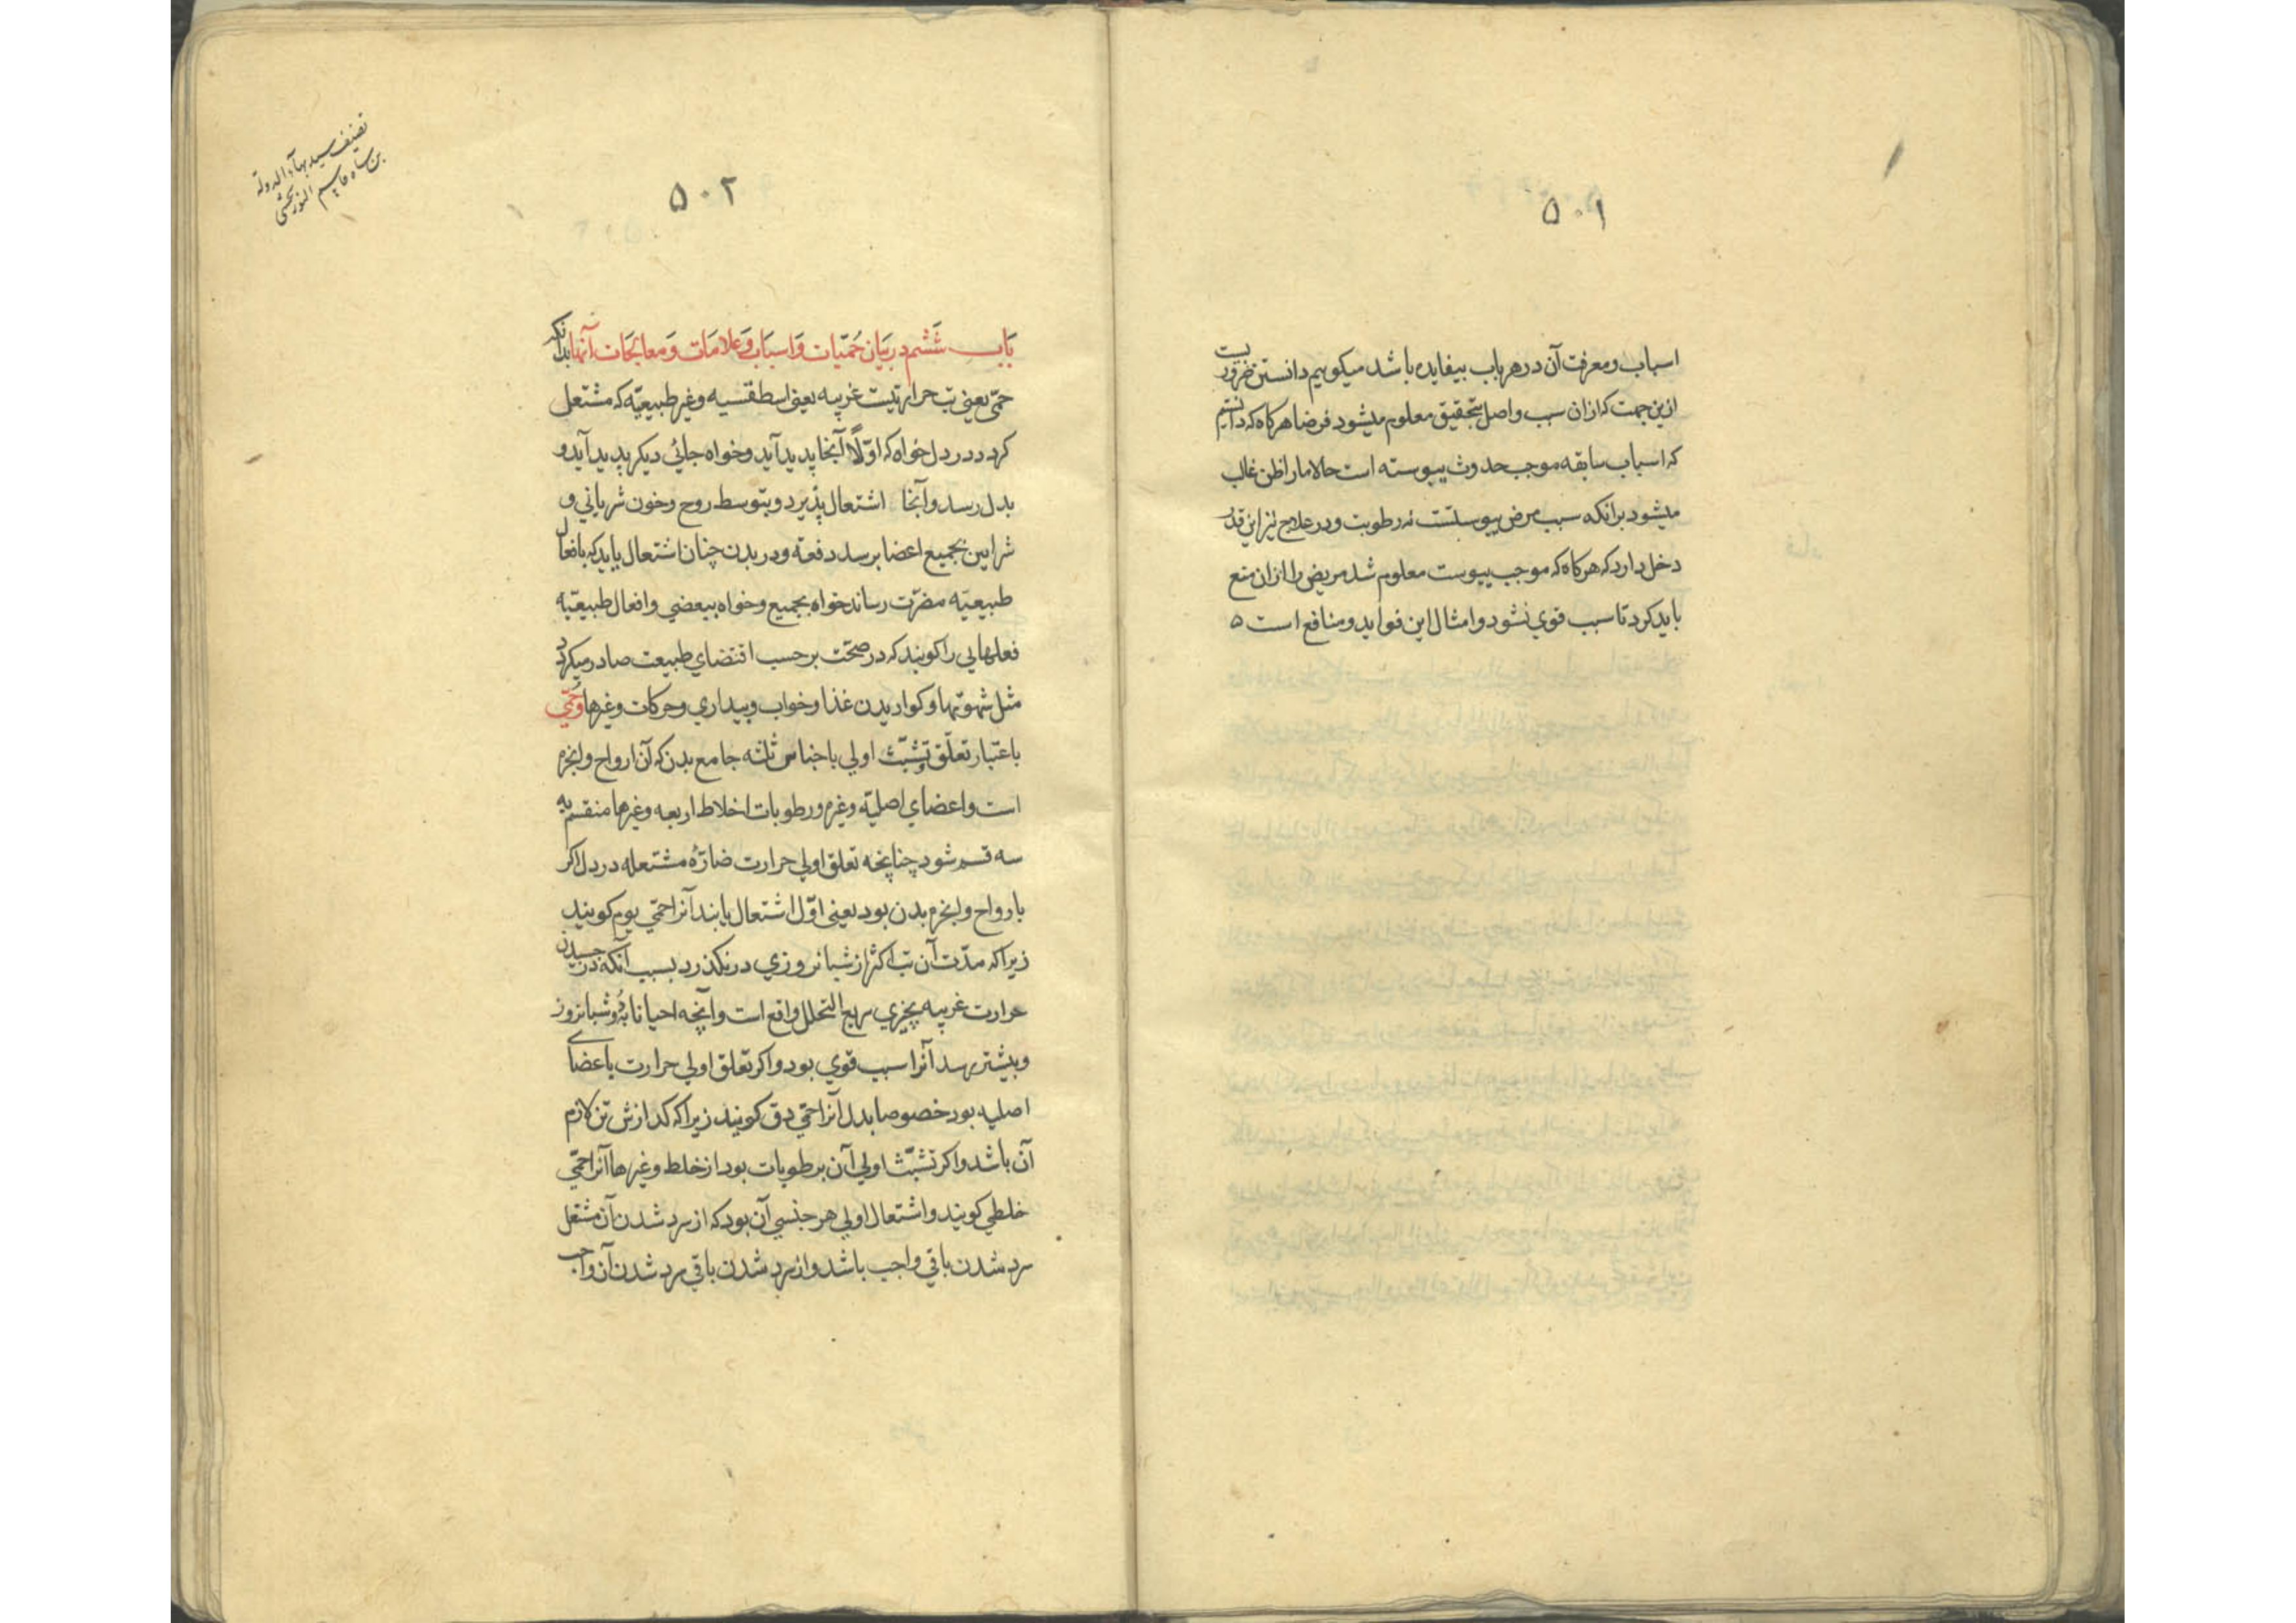 ۵۰۱
اسباب و معرفت آن در هر باب بیفایده باشد میکوییم دانستن ضروریست
ازین جهت که ازان سبب واصل بتحقیق معلوم میشود فرضا هرکاه که دانستیم
که اسباب سابقه موجب حدوث یبوسته است حالا ما را ظن غالب
میشود برانکه سبب مرض یبوستست نه رطوبت و در علاج نیز این قدر
دخل دارد که هرکاه که موجب یبوست معلوم شد مریض را ازان منع
باید کرد تا سبب قوي نشود و امثال این فواید و منافع است ۵
۵۰۲
تصنیف سید بهاء الدوله
بن شاه قاسم النوربخشی
بَاب شَشم در بیَان حُمیّات وَاسبَاب وَعَلامَات وَمعَالجَات آنها بدانکه
حمّی یعنی تب حرارتیست غریبه یعنی اسطقسیه و غیر طبیعیّه که مشتعل
کردد در دل خواه که اوّلًا آنجا پدید آید و خواه جائي دیکر پدید آید و
بدل رسد و آنجا اشتعال پذیرد و بتوسط روح و خون شریاني و
شرایین بجمیع اعضا برسد دفعة و در بدن چنان اشتعال یابد که بافعال
طبیعیّه مضرّت رساند خواه بجمیع و خواه ببعضي و افعال طبیعیّه
فعلهایي را کویند که در صحّت بر حسب اقتضاي طبیعت صادر میکردد
مثل شهوتها و کواریدن غذا و خواب و بیداري و حرکات و غیرها وحُمّي
باعتبار تعلّق و تشبّث اولي باجناس ثلثه جامع بدن که آن ارواح و ابخره
است و اعضاي اصلیّه و غیره و رطوبات اخلاط اربعه و غیرها منقسم به
سه قسم شود چنانچه تعلق اولي حرارت ضارّهٔ مشتعله در دل اکر
بارواح و ابخره بدن بود یعنی اوّل اشتعال یابند آنرا حمّی یوم کویند
زیرا که مدّت آن تب اکثر از شبانروزي درنکذرد بسبب آنکه در جسیدن
حرارت غریبه بچیزي سریع التحلل واقع است و آنچه احیانا بدُو شبانروز
و بیشتر رسد آنرا سبب قوي بود و اکر تعلق اولي حرارت باعضاي
اصلیه بود خصوصا بدل آنرا حمّي دق کویند زیرا که کدازش تن لازم
آن باشد و اکر تشبّث اولي آن برطوبات بود از خلط و غیرها آنرا حمّي
خلطي کویند و اشتعال اولي هر جنسي آن بود که از سرد شدن آن مشتعل
سرد شدن باقي واجب باشد و از سرد شدن باقي سرد شدن آن واجب